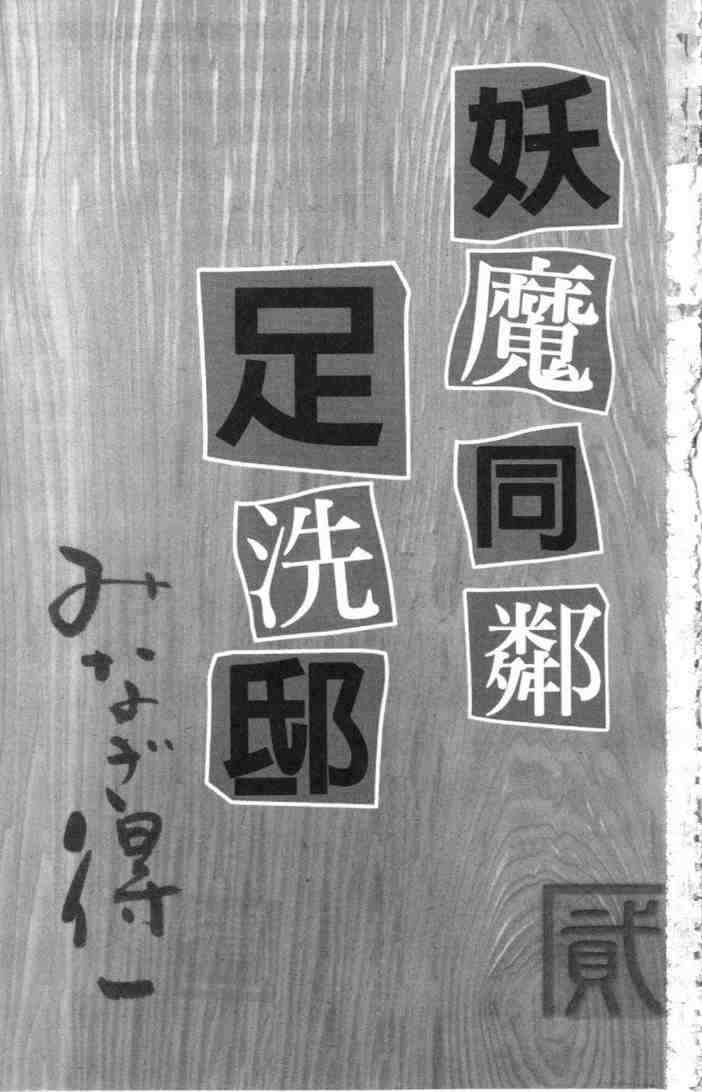 妖魔同鄰
足洗邸
みなぎ得一
貳